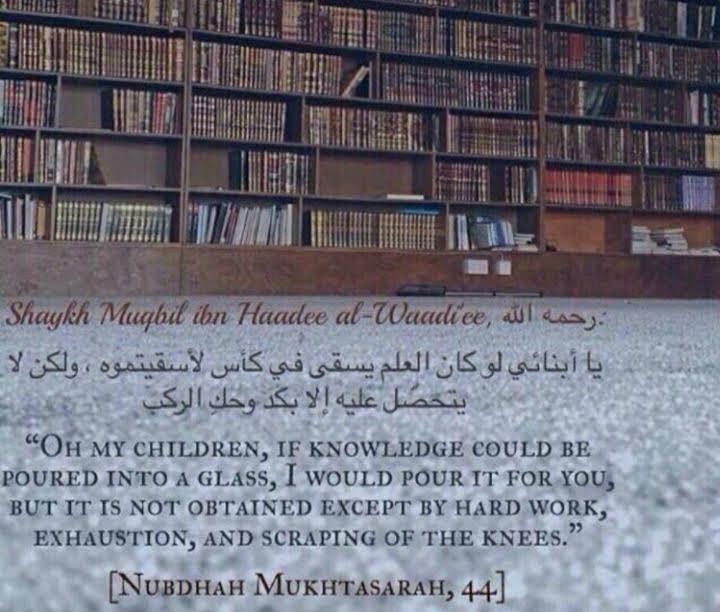 Shaykh Muqbil ibn Haadee al-Waadi'ee, رحمه الله:
يا أبنائي لو كان العلم يسقى في كأس لأسقيتموه ، ولكن لا
يتحصل عليه إلا بكد وحك الركب
“OH MY CHILDREN, IF KNOWLEDGE COULD BE
POURED INTO A GLASS, I WOULD POUR IT FOR YOU,
BUT IT IS NOT OBTAINED EXCEPT BY HARD WORK,
EXHAUSTION, AND SCRAPING OF THE KNEES.”
[NUBDHAH MUKHTASARAH, 44]